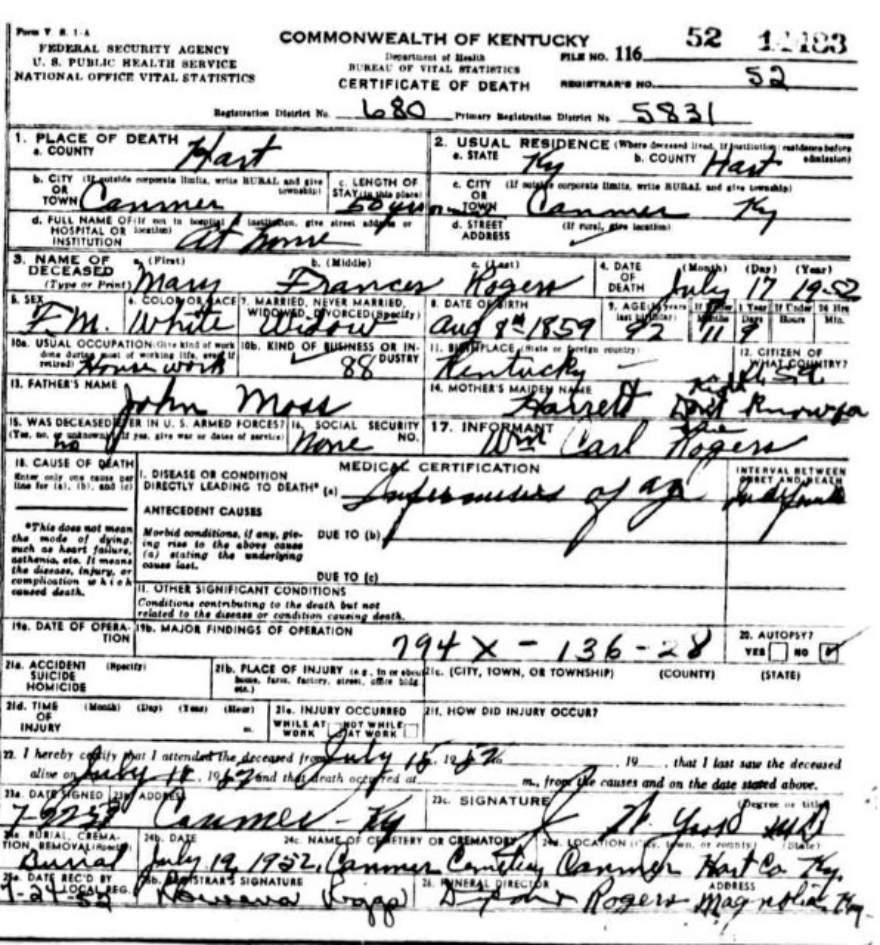 Form V. S. 1-A
FEDERAL SECURITY AGENCY
U. S. PUBLIC HEALTH SERVICE
NATIONAL OFFICE VITAL STATISTICS
COMMONWEALTH OF KENTUCKY
Department of Health
BUREAU OF VITAL STATISTICS
CERTIFICATE OF DEATH
FILE NO. 116 52
REGISTRAR'S NO. 52
Registration District No. 680 Primary Registration District No. 5831
1. PLACE OF DEATH
a. COUNTY Hart
2. USUAL RESIDENCE (Where deceased lived, If institution: residence before admission)
a. STATE Ky b. COUNTY Hart
b. CITY (If outside corporate limits, write RURAL and give township)
OR
TOWN Canmer
c. LENGTH OF STAY (in this place) 50 yrs
c. CITY (If outside corporate limits, write RURAL and give township)
OR
TOWN Canmer Ky
d. FULL NAME OF (If not in hospital or institution, give street address or location)
HOSPITAL OR
INSTITUTION At home
d. STREET (If rural, give location)
ADDRESS
3. NAME OF DECEASED (Type or Print)
a. (First) b. (Middle) c. (Last)
Mary Frances Rogers
4. DATE OF DEATH (Month) (Day) (Year)
July 17 1952
5. SEX FM.
6. COLOR OR RACE White
7. MARRIED, NEVER MARRIED, WIDOWED, DIVORCED (Specify) Widow
8. DATE OF BIRTH Aug 8th 1859
9. AGE (In years last birthday) 92
If Under 1 Year Months 11 Days 9
If Under 24 Hrs Hours Min.
10a. USUAL OCCUPATION (Give kind of work done during most of working life, even if retired) House work
10b. KIND OF BUSINESS OR INDUSTRY 88
11. BIRTHPLACE (State or foreign country) Kentucky
12. CITIZEN OF WHAT COUNTRY?
13. FATHER'S NAME
John Moss
14. MOTHER'S MAIDEN NAME
Harrett Dont Know
15. WAS DECEASED EVER IN U. S. ARMED FORCES? (Yes, no, or unknown) (If yes, give war or dates of service) no
16. SOCIAL SECURITY NO. None
17. INFORMANT
Wm Carl Rogers
18. CAUSE OF DEATH
Enter only one cause per line for (a), (b), and (c)
*This does not mean the mode of dying, such as heart failure, asthenia, etc. It means the disease, injury, or complication which caused death.
MEDICAL CERTIFICATION
I. DISEASE OR CONDITION DIRECTLY LEADING TO DEATH* (a) Infirmities of age
INTERVAL BETWEEN ONSET AND DEATH
ANTECEDENT CAUSES
Morbid conditions, if any, giving rise to the above cause (a) stating the underlying cause last.
DUE TO (b)
DUE TO (c)
II. OTHER SIGNIFICANT CONDITIONS
Conditions contributing to the death but not related to the disease or condition causing death.
19a. DATE OF OPERATION
19b. MAJOR FINDINGS OF OPERATION
794X - 136 - 28
20. AUTOPSY?
YES NO
21a. ACCIDENT SUICIDE HOMICIDE (Specify)
21b. PLACE OF INJURY (e.g., in or about home, farm, factory, street, office bldg etc.)
21c. (CITY, TOWN, OR TOWNSHIP) (COUNTY) (STATE)
21d. TIME OF INJURY (Month) (Day) (Year) (Hour) m.
21e. INJURY OCCURRED
WHILE AT WORK NOT WHILE AT WORK
21f. HOW DID INJURY OCCUR?
22. I hereby certify that I attended the deceased from July 15, 1952 19 , that I last saw the deceased
alive on July 1952 and that death occurred at m., from the causes and on the date stated above.
23a. DATE SIGNED
23b. ADDRESS Canmer - Ky
23c. SIGNATURE (Degree or title)
24a. BURIAL, CREMATION, REMOVAL (Specify) Burial
24b. DATE July 19, 1952
24c. NAME OF CEMETERY OR CREMATORY Canmer Cemetery
24d. LOCATION (City, town, or county) (State) Canmer Hart Co Ky.
25a. DATE REC'D BY LOCAL REG. 7-24-52
25b. REGISTRAR'S SIGNATURE
26. FUNERAL DIRECTOR ADDRESS
Rogers Magnolia, Ky